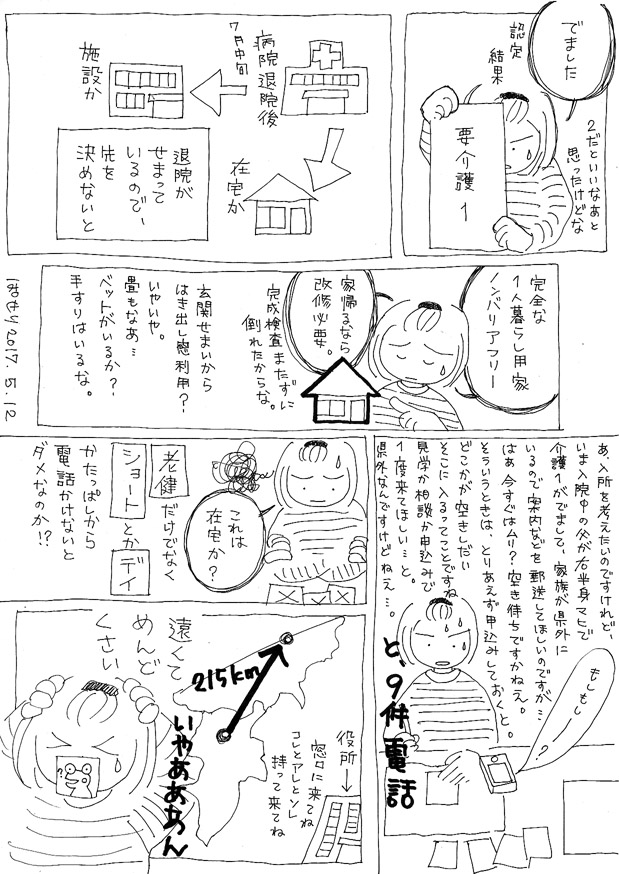 でました
認定
結果
要介護1
2だといいなあと
思ったけどな
病院退院後
7月中旬
施設か
在宅か
退院が
せまって
いるので、
先を
決めないと
完全な
1人暮らし用家
ノンバリアフリー
家帰るなら
改修必要。
完成検査またずに
倒れたからな。
玄関せまいから
はき出し窓利用?
いやいや。
畳もなあ…
ベットがいるか?
手すりはいるな。
2017.5.12
あ、入所を考えたいのですけれど、
いま入院中の父が右半身マヒで
介護1がでまして、家族が県外に
いるので案内などを郵送してほしいのですが…
はぁ 今すぐはムリ?空き待ちですかねえ。
そういうときは、とりあえず申込みしておくと。
どこかが空きしだい
そこに入るってことですね
見学か相談か申込みで
1度来てほしい…と。
県外なんですけどねえ…。
もしもし
?
と、9件電話
これは
在宅か?
老健だけでなく
ショートとか
デイ
かたっぱしから
電話かけないと
ダメなのか!?
役所→
窓口に来てね
コレとアレとソレ
持って来てね
215km
遠くて
めんど
くさい
いやああぁん